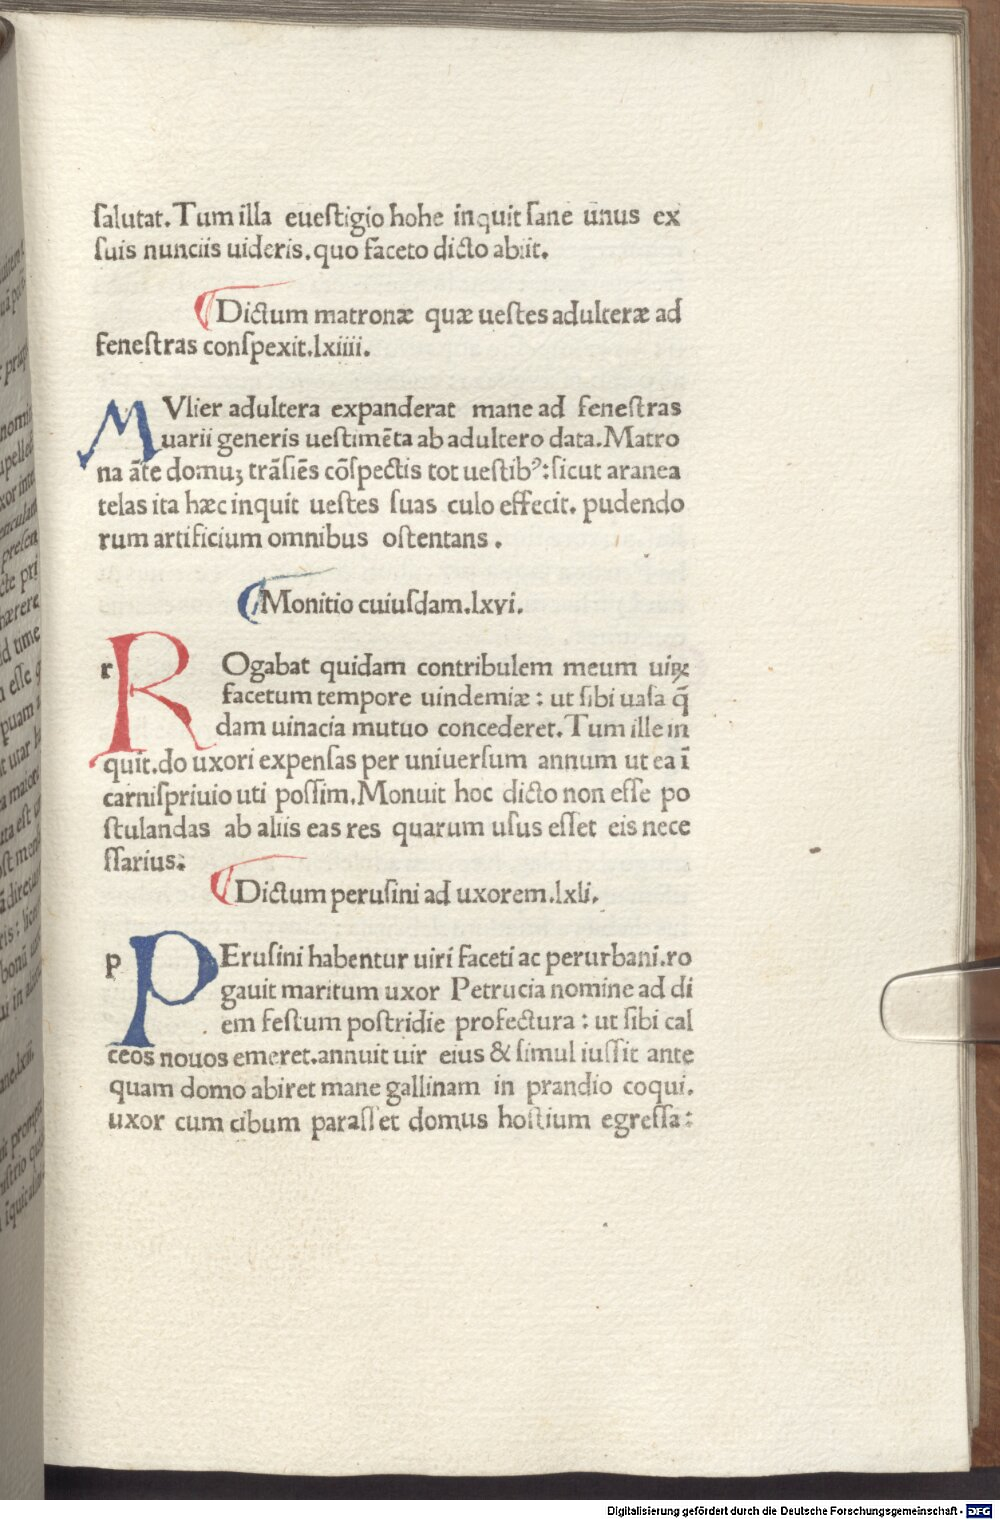 ſalutat. Tum illa eueſtigio hohe inquit ſane unus ex
ſuis nunciis uideris. quo faceto dicto abiit.
Dictum matronæ quæ ueſtes adulteræ ad
feneſtras conſpexit. lxiiii.
MVlier adultera expanderat mane ad feneſtras
uarii generis ueſtimēta ab adultero data. Matro
na āte domuꝫ trāſiēs cōſpectis tot ueſtibꝰ: ſicut aranea
telas ita hæc inquit ueſtes ſuas culo effecit. pudendo
rum artificium omnibus oſtentans.
Monitio cuiuſdam. lxvi.
r ROgabat quidam contribulem meum uiꝝ
facetum tempore uindemiæ: ut ſibi uaſa q̄
dam uinacia mutuo concederet. Tum ille in
quit. do uxori expenſas per uniuerſum annum ut ea ī
carniſpriuio uti poſſim. Monuit hoc dicto non eſſe po
ſtulandas ab aliis eas res quarum uſus eſſet eis nece
ſſarius:
Dictum peruſini ad uxorem. lxli.
p PEruſini habentur uiri faceti ac perurbani. ro
gauit maritum uxor Petrucia nomine ad di
em feſtum poſtridie profectura: ut ſibi cal
ceos nouos emeret. annuit uir eius & ſimul iuſſit ante
quam domo abiret mane gallinam in prandio coqui.
uxor cum cibum paraſſet domus hoſtium egreſſa:
Digitalisierung gefördert durch die Deutsche Forschungsgemeinschaft - DFG